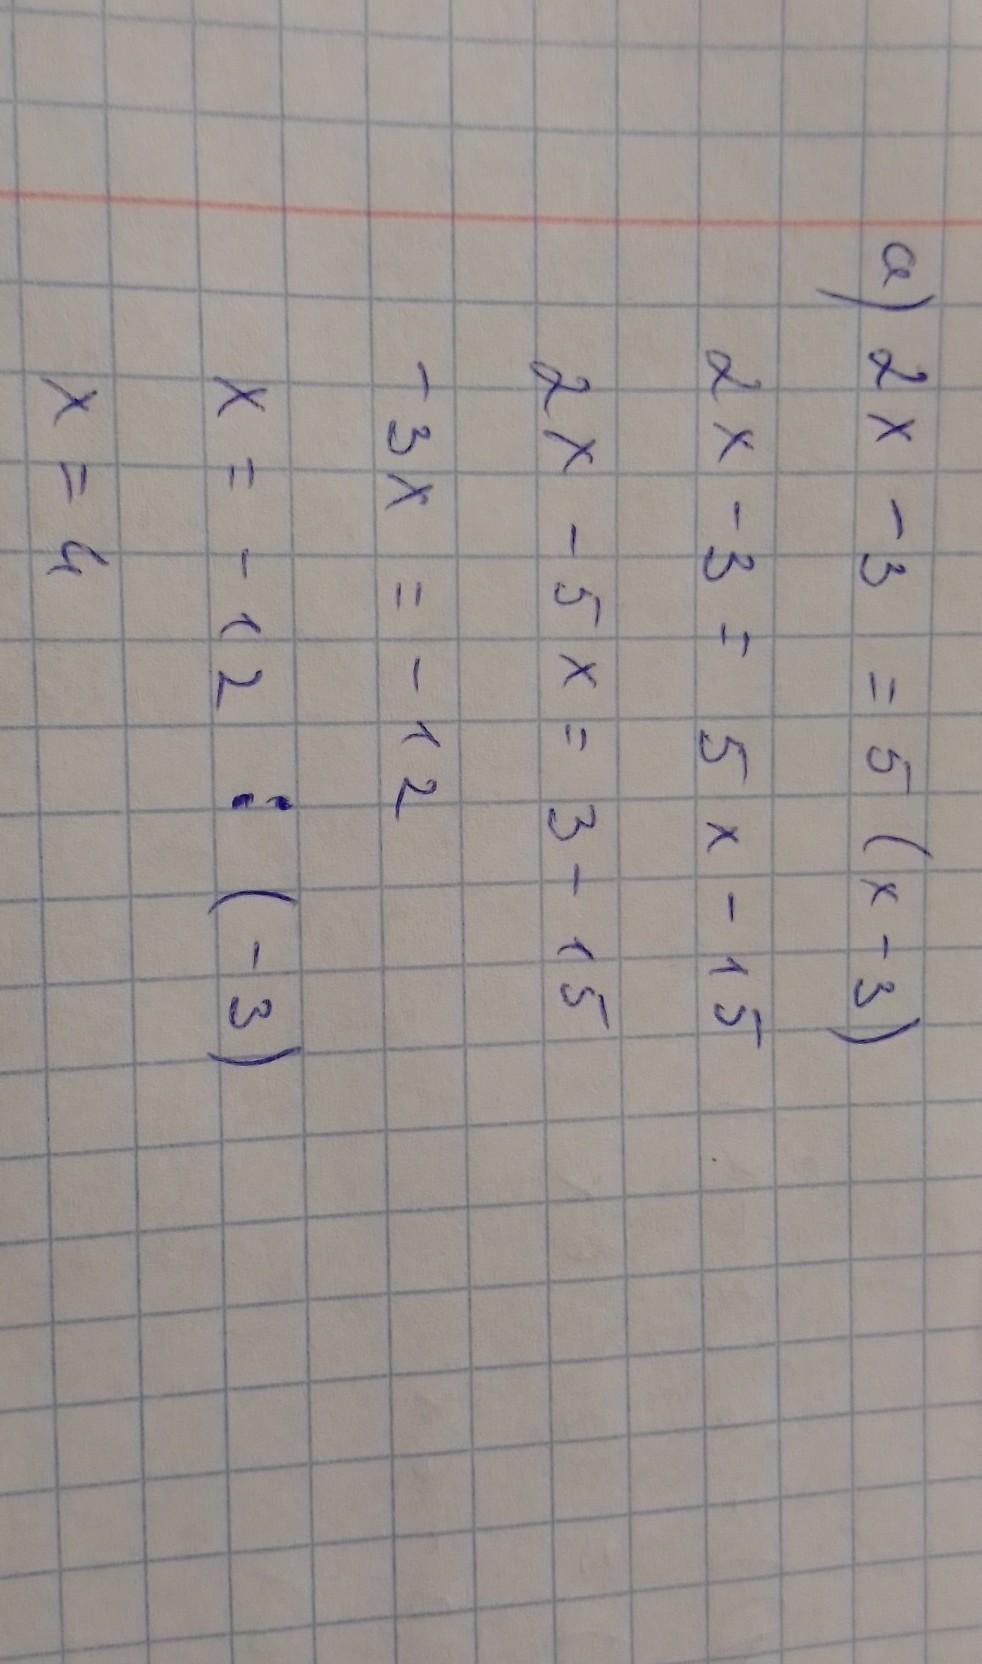 а) 2x - 3 = 5 (x - 3)
2x - 3 = 5x - 15
2x - 5x = 3 - 15
-3x = -12
x = -12 : (-3)
x = 4